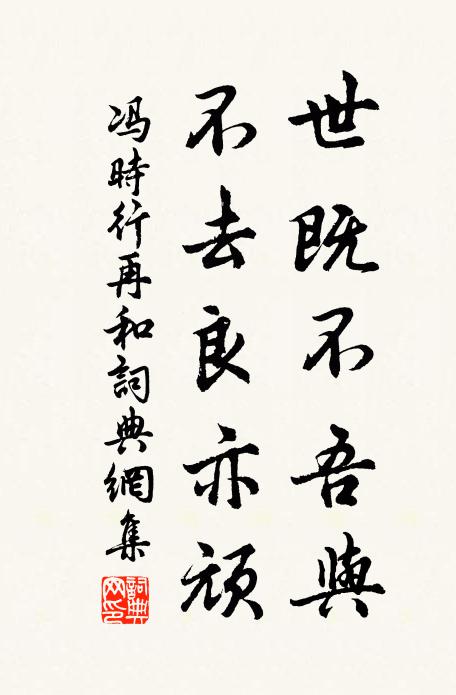 世既不吾與
不去良亦頑
冯時行再和詞典網集
詞典
网印